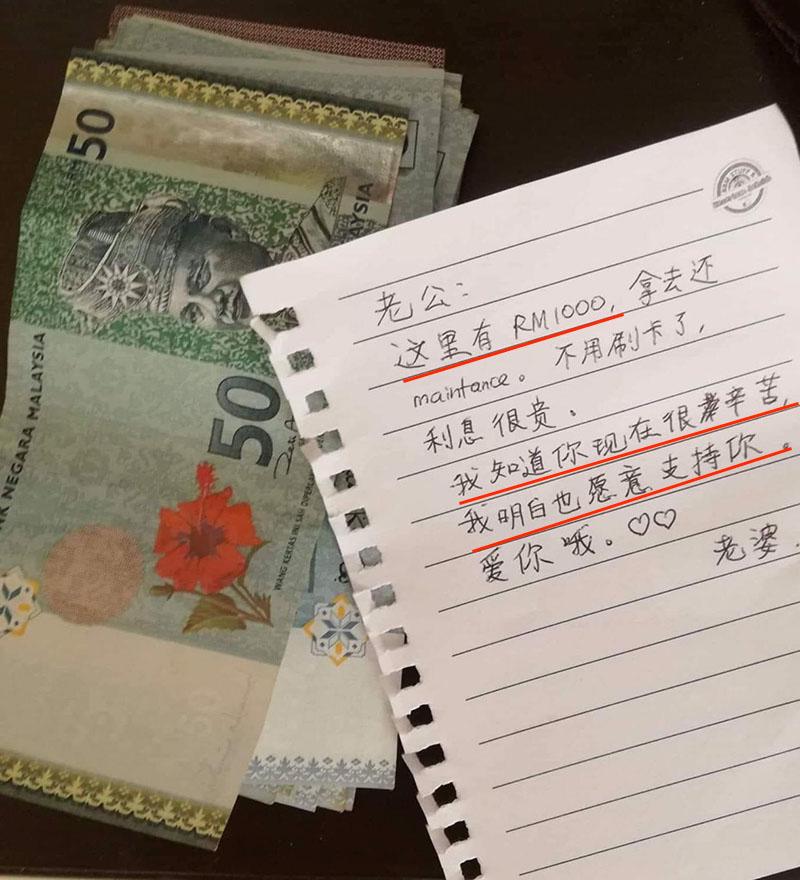 50
RM
MALAYSIA
BANK NEGARA MALAYSIA
50
WANG KERTAS INI SAH DIPERLAKU
老公：
这里有 RM1000, 拿去还
maintance。不用刷卡了,
利息很贵。
我知道你现在很辛苦,
我明白也愿意支持你。
爱你哦。♡♡
老婆.